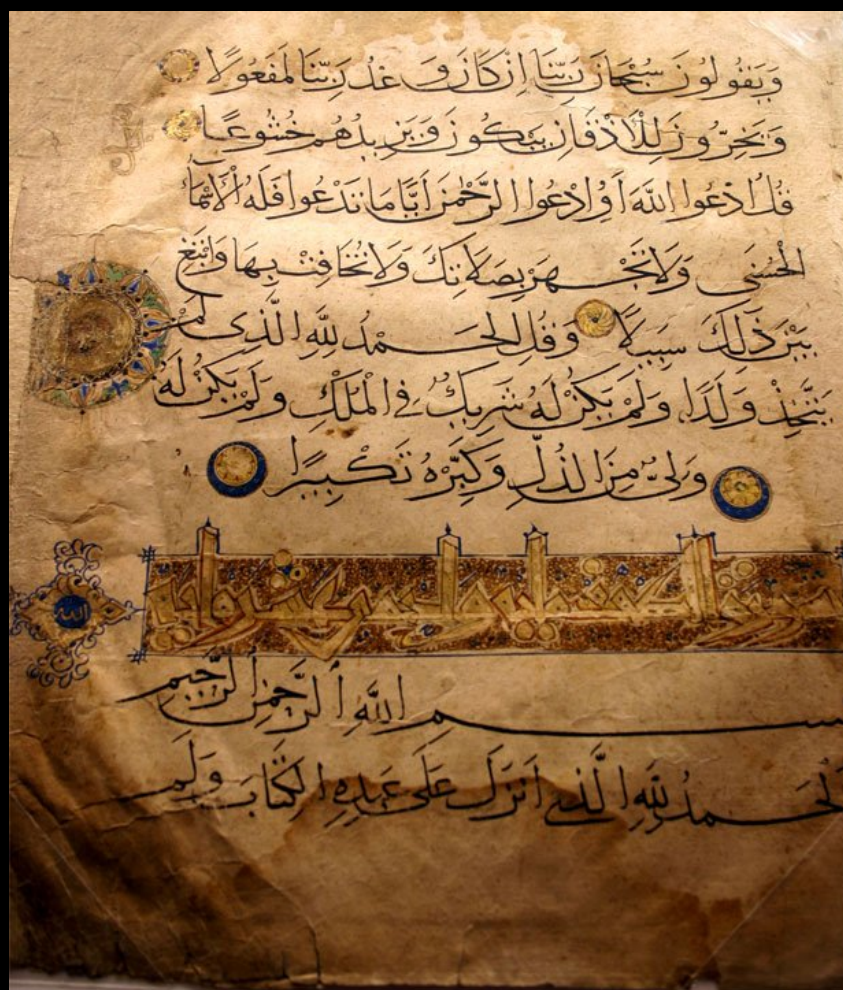 وَيَقُولُونَ سُبْحَانَ رَبِّنَا إِنْ كَانَ وَعْدُ رَبِّنَا لَمَفْعُولًا
وَيَخِرُّونَ لِلْأَذْقَانِ يَبْكُونَ وَيَزِيدُهُمْ خُشُوعًا
قُلِ ادْعُوا اللَّهَ أَوِ ادْعُوا الرَّحْمٰنَ أَيًّا مَا تَدْعُوا فَلَهُ الْأَسْمَاءُ
الْحُسْنَى وَلَا تَجْهَرْ بِصَلَاتِكَ وَلَا تُخَافِتْ بِهَا وَابْتَغِ
بَيْنَ ذَلِكَ سَبِيلًا وَقُلِ الْحَمْدُ لِلَّهِ الَّذِي لَمْ
يَتَّخِذْ وَلَدًا وَلَمْ يَكُنْ لَهُ شَرِيكٌ فِي الْمُلْكِ وَلَمْ يَكُنْ لَهُ
وَلِيٌّ مِنَ الذُّلِّ وَكَبِّرْهُ تَكْبِيرًا
الله
بسم اللَّهِ الرَّحْمٰنِ الرَّحِيمِ
الْحَمْدُ لِلَّهِ الَّذِي أَنْزَلَ عَلَى عَبْدِهِ الْكِتَابَ وَلَمْ